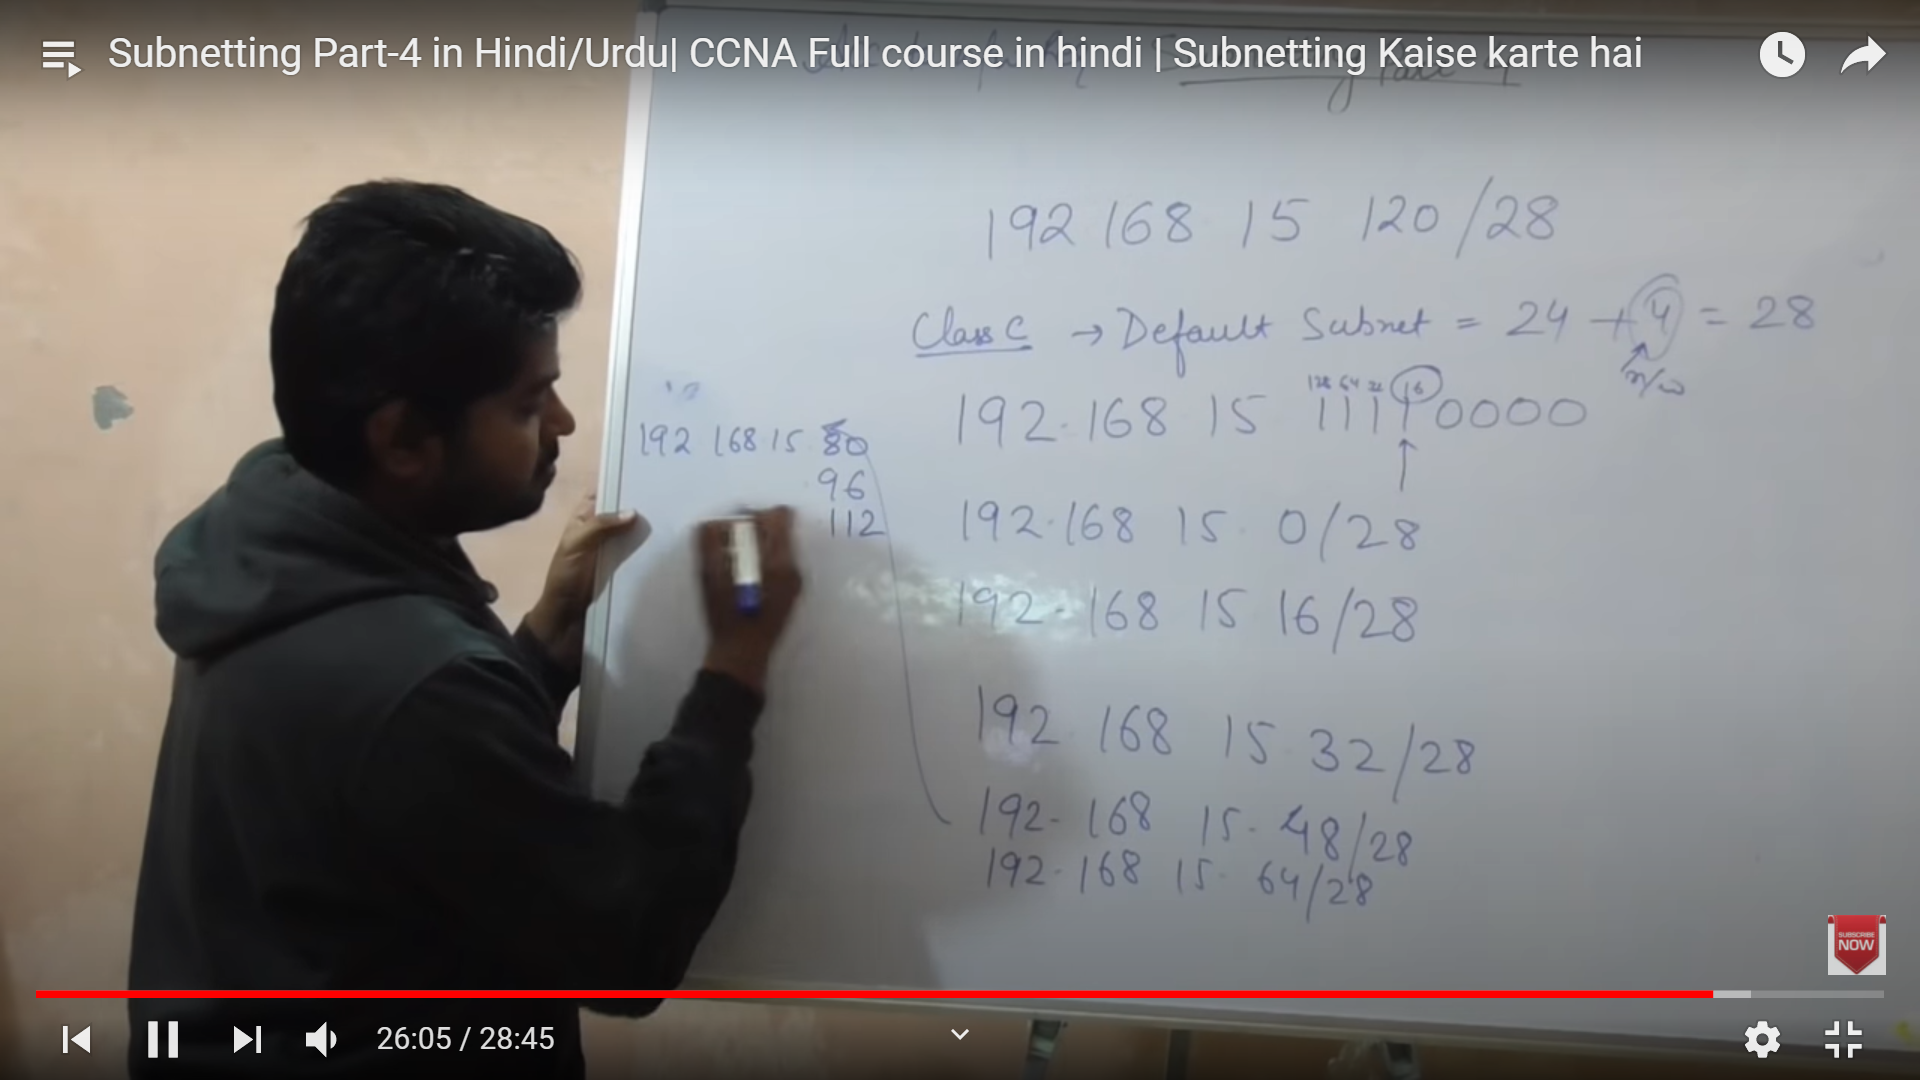 Subnetting Part-4 in Hindi/Urdu| CCNA Full course in hindi | Subnetting Kaise karte hai
192 168 15 120/28
Class C → Default Subnet = 24 + 4 = 28
n/w
128 64 32 16
192.168 15 11110000
192.168 15. 0/28
192.168 15 16/28
192.168 15.32/28
192.168 15.48/28
192.168 15.64/28
192.168.15.80
96
112
SUBSCRIBE
NOW
26:05 / 28:45